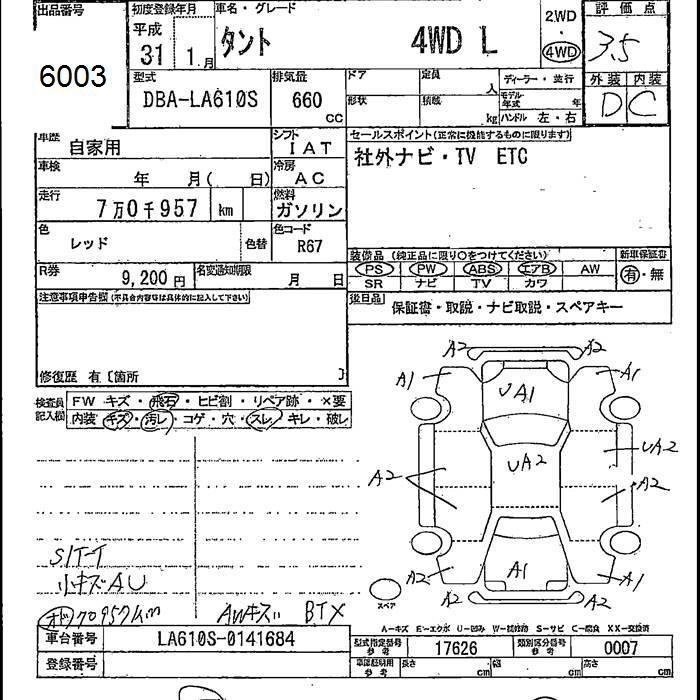 出品番号 初度登録年月 車名・グレード 2.WD 評価点
平成 31 1 月 タント 4WD L 4WD 3.5
6003
型式 排気量 ドア 定員 人 ディーラー・並行 外装 内装
DBA-LA610S 660 CC 形状 積載 kg モデル年式 年 D C
ハンドル 左・右
車歴 自家用 シフト IAT セールスポイント(正常に機能するものに限ります)
車検 年 月( 日) 冷房 AC 社外ナビ・TV ETC
走行 7万0千957 km 燃料 ガソリン
色 レッド 色替 色コード R67
装備品 (純正品に限り○をつけてください) 新車保証書
R券 9,200 円 名変通知期限 月 日 PS PW ABS エアB AW 有・無
SR ナビ TV カワ
注意事項申告欄(不具合内容等は具体的に記入して下さい) 後日品 保証書・取説・ナビ取説・スペアキー
修復歴 有〔箇所 〕
検査員記入欄 FW キズ・飛石・ヒビ割・リペア跡・×要
内装 キズ・汚レ・コゲ・穴・スレ・キレ・破レ
A2 A2
A1 UA1 A1
UA2 UA2
A2 A2
A2 A1 A1
A2 A2
スペア
S/T-T
小キズAU
オド70957km AWキズ BTX
A-キズ E-エクボ U-凹み W-補修跡 S-サビ C-腐食 XX-交換済
車台番号 LA610S-0141684 型式指定番号 参考 17626 類別区分番号 参考 0007
登録番号 車庫証明用 参考 長さ cm 幅 cm 高さ cm